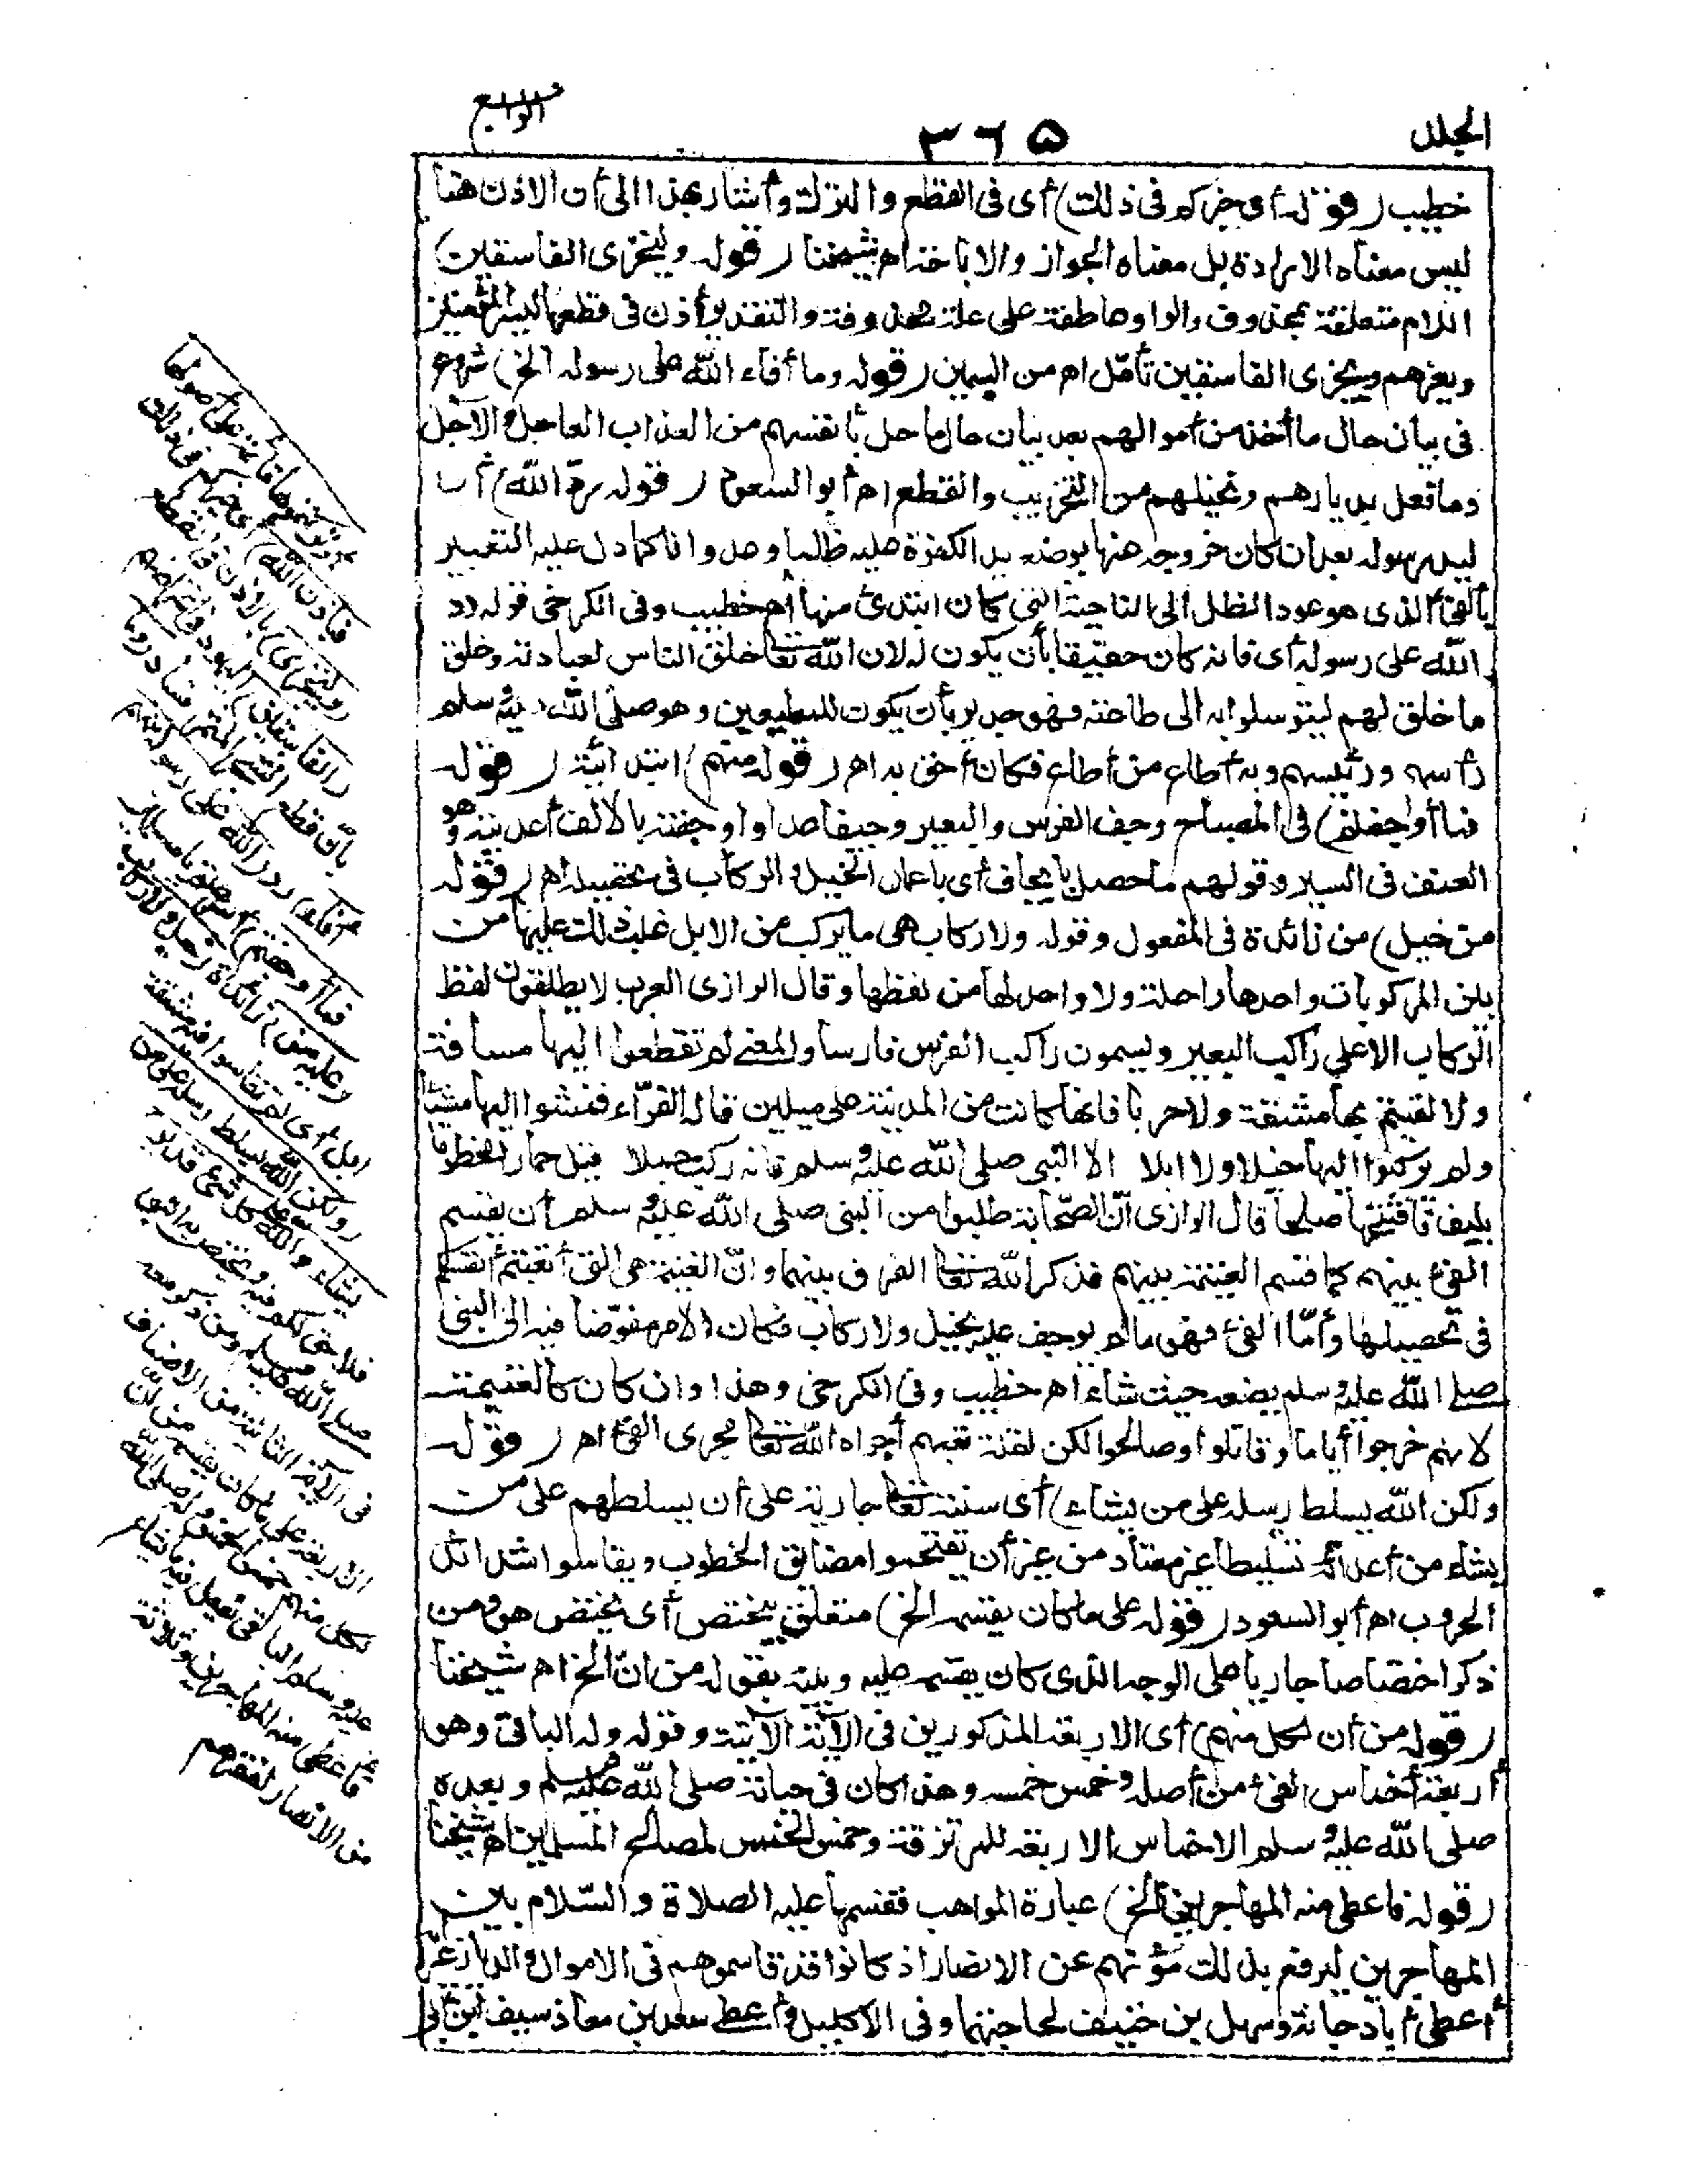 الجلد
٣٦٥
الرابع
خطيب (قوله أى خيركم فى ذلك) أى فى القطع والترك وأشار بهذا الى أن الاذن هنا
ليس معناه الارادة بل معناه الجواز والاباحة اه شيخنا (قوله وليخزى الفاسقين)
اللام متعلقة بمحذوف والواو عاطفة على علة محذوفة والتقدير أذن فى قطعها ليسر المؤمنين
ويعزهم ويخزى الفاسقين تأمّل اه من السمين (قوله وما أفاء الله على رسوله الخ) شروع
فى بيان حال ما أخذ من أموالهم بعد بيان حال ما حل بأنفسهم من العذاب العاجل والآجل
وما فعل بديارهم ونخيلهم من التخريب والقطع اه أبو السعود (قوله ردّ الله) أى
ليد رسوله بعد أن كان خروجه عنها بوضع يد الكفرة عليه ظلما وعدوانا كما دل عليه التعبير
بالفئ الذى هو عود الظل الى الناحية التى كان ابتدئ منها اه خطيب وفى الكرخى قوله رد
الله على رسوله أى فانه كان حقيقا بأن يكون له لان الله تعالى خلق الناس لعبادته وخلق
ما خلق لهم ليتوسلوا به الى طاعته فهو جدير بأن يكون للمطيعين وهو صلى الله عليه وسلم
رأسهم ورئيسهم وبه أطاع من أطاع فكان أحق به اه (قوله منهم) ابتدائية (قوله
فما أوجفتم) فى المصباح وجف الفرس والبعير وجيفا عدا وأوجفته بالالف أعديته وهو
العنف فى السير وقولهم ما حصل بايجاف أى باعمال الخيل والركاب فى تحصيله اه (قوله
من خيل) من زائدة فى المفعول وقوله ولا ركاب هى ما يركب من الابل غلب ذلك عليها من
بين المركوبات واحدها راحلة ولا واحد لها من لفظها وقال الرازى العرب لا يطلقون لفظ
الركاب الا على راكب البعير ويسمون راكب الفرس فارسا والمعنى لم تقطعوا اليها مسافة
ولا لقيتم بها مشقة ولا حربا فانها كانت من المدينة على ميلين قاله الفرّاء فمشوا اليها مشيا
ولم يركبوا اليها خيلا ولا ابلا الا النبى صلى الله عليه وسلم فانه ركب جملا وقيل حمارا مخطوما
بليف فافتتحها صلحا قال الرازى انّ الصحابة طلبوا من النبى صلى الله عليه وسلم أن يقسم
الفئ بينهم كما قسم الغنيمة بينهم فذكر الله تعالى الفرق بينهما وانّ الغنيمة هى التى أتعبتم أنفسكم
فى تحصيلها وأمّا الفئ فهو ما لم يوجف عليه بخيل ولا ركاب فكان الامر مفوّضا فيه الى النبى
صلى الله عليه وسلم يضعه حيث شاء اه خطيب وفى الكرخى وهذا وان كان كالغنيمة
لانهم خرجوا أياما وقاتلوا وصالحوا لكن لقلة تعبهم أجراه الله تعالى مجرى الفئ اه (قوله
ولكن الله يسلط رسله على من يشاء) أى سنته تعالى جارية على أن يسلطهم على من
يشاء من أعدائه تسليطا غير معتاد من غير أن يقتحموا مضايق الخطوب ويقاسوا شدائد
الحروب اه أبو السعود (قوله على ما كان يقسمه الخ) متعلق بيختص أى يختص هو ومن
ذكر اختصاصا جاريا على الوجه الذى كان يقسمه عليه وبينه بقوله من انّ الخ اه شيخنا
(قوله من أن لكل منهم) أى الاربعة المذكورين فى الآية الآتية وقوله وله الباقى وهو
أربعة أخماس الفئ من أصله وخمس خمسه وهذا كان فى حياته صلى الله عليه وسلم وبعده
صلى الله عليه وسلم الاخماس الاربعة للمرتزقة وخمس الخمس لمصالح المسلمين اه شيخنا
(قوله فاعطى منه المهاجرين الخ) عبارة المواهب فقسمها عليه الصلاة والسّلام بين
المهاجرين ليرفع بذلك مؤنتهم عن الانصار اذ كانوا قد قاسموهم فى الاموال والديار غير أنه
أعطى أبا دجانة وسهل بن حنيف لحاجتهما وفى الاكليل وأعطى سعد بن معاذ سيف ابن أبى
أو تركتموها قائمة على أصولها
فباذن الله) أى خيركم فى ذلك
(وليخزى) بالاذن فى القطع
(الفاسقين) اليهود فى اعتراضهم
بأنّ قطع الشجر المثمر فساد (وما
أفاء) رد (الله على رسوله منهم
فما أوجفتم) أسرعتم يا مسلمين
(عليه من) زائدة (خيل ولا ركاب)
ابل أى لم تقاسوا فيه مشقة
(ولكن الله يسلط رسله على من
يشاء والله على كل شئ قدير)
فلا حق لكم فيه ويختص به النبى
صلى الله عليه وسلم ومن ذكر معه
فى الآية الثانية من الاصناف
الاربعة على ما كان يقسمه من أنّ
لكل منهم خمس الخمس وله صلى الله
عليه وسلم الباقى يفعل فيه ما يشاء
فأعطى منه المهاجرين وثلاثة
من الانصار لفقرهم